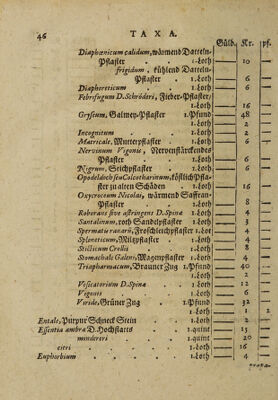 46 TAXA.
Güld. Kr. pf.
Diaphœnicum calidum, wärmend Datteln-
Pflaster 1. Loth — 10 —
frigidum, kühlend Datteln-
Pflaster 1. Loth — 6 —
Diaphoreticum 1. Loth — 6 —
Febrifugum D. Schröderi, Fieber-Pflaster/
1. Loth — 16 —
Gryseum, Galmey-Pflaster 1. Pfund — 48 —
1. Loth — 2 —
Incognitum 1. Loth — 2 —
Matricale, Mutterpflaster 1. Loth — 4 —
Nervinum Vigonis, Nervenstärckendes
Pflaster 1. Loth — 6 —
Nigrum, Stichpflaster 1. Loth — 4 —
Opodeldoch seu Colcotharinum, köstlich Pfla-
ster zu alten Schäden 1. Loth — 16 —
Oxycroceum Nicolai, wärmend Saffran-
Pflaster 1. Loth — 8 —
Roborans sive astringens D. Spinæ 1. Loth — 4 —
Santalinum, roth Sandelpflaster 1. Loth — 3 —
Spermatis ranarū, Froschleichpflaster 1. Loth — 3 —
Spleneticum, Miltzpflaster 1. Loth — 4 —
Stillicum Crollii 1. Loth — 8 —
Stomachale Galeni, Magenpflaster 1. Loth — 4 —
Triapharmacum, Brauner Zug 1. Pfund — 40 —
1. Loth — 2 —
Vesicatorium D. Spinæ 1. Loth — 12 —
Vigonis 1. Loth — 6 —
Viride, Grüner Zug 1. Pfund — 32 —
1. Loth — 1 2
Entale, Purpur Schneck Stein 1. Loth — 2 —
Essentia ambræ D. Hochstatts 1. quint — 15 —
mindereri 1. quint — 20 —
citri 1. Loth — 16 —
Euphorbium 1. Loth — 4 —